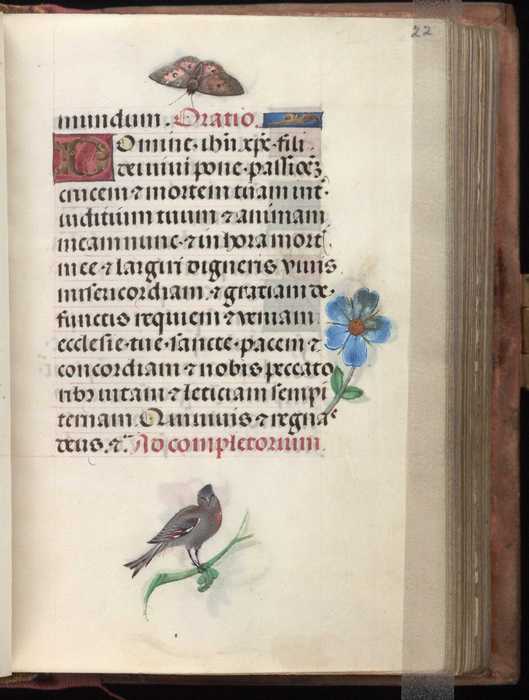 22
mundum. Oratio.
Domine ihu xpe fili
dei vivi pone passioez
crucem ⁊ mortem tuam int̾
iuditium tuum ⁊ animam
meam nunc ⁊ in hora mort̾
mee ⁊ largiri digneris vivis
misericordiam ⁊ gratiam de-
functis requiem ⁊ veniam
ecclesie tue sancte pacem ⁊
concordiam ⁊ nobis peccato
ribꝰ vitam ⁊ leticiam sempi
ternam. Qui vivis ⁊ regnas
deus. ⁊c̄. Ad completorium